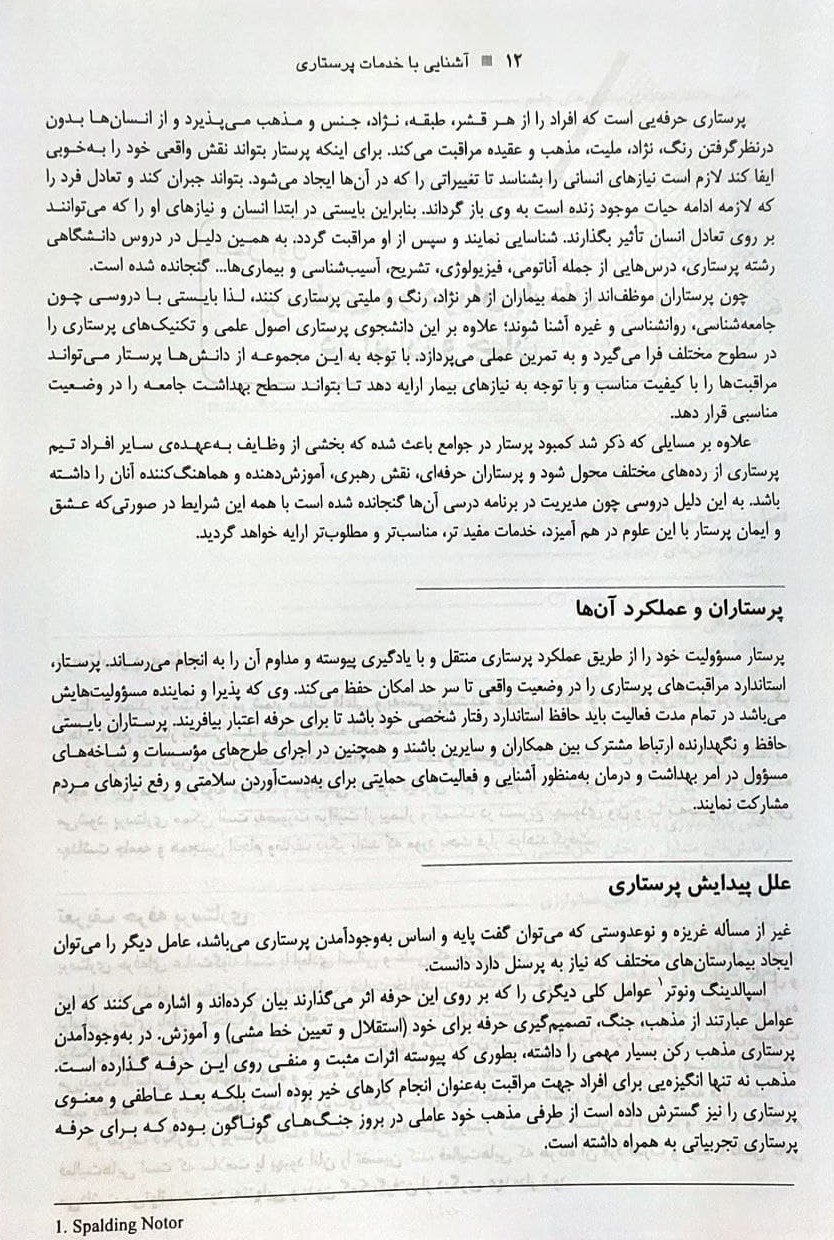 ۱۲ ■ آشنایی با خدمات پرستاری
پرستاری حرفه‌یی است که افراد را از هر قشر، طبقه، نژاد، جنس و مذهب می‌پذیرد و از انسان‌ها بدون
درنظرگرفتن رنگ، نژاد، ملیت، مذهب و عقیده مراقبت می‌کند. برای اینکه پرستار بتواند نقش واقعی خود را به‌خوبی
ایفا کند لازم است نیازهای انسانی را بشناسد تا تغییراتی را که در آن‌ها ایجاد می‌شود. بتواند جبران کند و تعادل فرد را
که لازمه ادامه حیات موجود زنده است به وی باز گرداند. بنابراین بایستی در ابتدا انسان و نیازهای او را که می‌توانند
بر روی تعادل انسان تأثیر بگذارند. شناسایی نمایند و سپس از او مراقبت گردد. به همین دلیل در دروس دانشگاهی
رشته پرستاری، درس‌هایی از جمله آناتومی، فیزیولوژی، تشریح، آسیب‌شناسی و بیماری‌ها... گنجانده شده است.
چون پرستاران موظف‌اند از همه بیماران از هر نژاد، رنگ و ملیتی پرستاری کنند، لذا بایستی با دروسی چون
جامعه‌شناسی، روانشناسی و غیره آشنا شوند؛ علاوه بر این دانشجوی پرستاری اصول علمی و تکنیک‌های پرستاری را
در سطوح مختلف فرا می‌گیرد و به تمرین عملی می‌پردازد. با توجه به این مجموعه از دانش‌ها پرستار می‌تواند
مراقبت‌ها را با کیفیت مناسب و با توجه به نیازهای بیمار ارایه دهد تا بتواند سطح بهداشت جامعه را در وضعیت
مناسبی قرار دهد.
علاوه بر مسایلی که ذکر شد کمبود پرستار در جوامع باعث شده که بخشی از وظایف به‌عهده‌ی سایر افراد تیم
پرستاری از رده‌های مختلف محول شود و پرستاران حرفه‌ای، نقش رهبری، آموزش‌دهنده و هماهنگ‌کننده آنان را داشته
باشد. به این دلیل دروسی چون مدیریت در برنامه درسی آن‌ها گنجانده شده است با همه این شرایط در صورتی‌که عشق
و ایمان پرستار با این علوم در هم آمیزد، خدمات مفید تر، مناسب‌تر و مطلوب‌تر ارایه خواهد گردید.
پرستاران و عملکرد آن‌ها
پرستار مسؤولیت خود را از طریق عملکرد پرستاری منتقل و با یادگیری پیوسته و مداوم آن را به انجام می‌رساند. پرستار،
استاندارد مراقبت‌های پرستاری را در وضعیت واقعی تا سر حد امکان حفظ می‌کند. وی که پذیرا و نماینده مسؤولیت‌هایش
می‌باشد در تمام مدت فعالیت باید حافظ استاندارد رفتار شخصی خود باشد تا برای حرفه اعتبار بیافریند. پرستاران بایستی
حافظ و نگهدارنده ارتباط مشترک بین همکاران و سایرین باشند و همچنین در اجرای طرح‌های مؤسسات و شاخه‌های
مسؤول در امر بهداشت و درمان به‌منظور آشنایی و فعالیت‌های حمایتی برای به‌دست‌آوردن سلامتی و رفع نیازهای مردم
مشارکت نمایند.
علل پیدایش پرستاری
غیر از مسأله غریزه و نوعدوستی که می‌توان گفت پایه و اساس به‌وجودآمدن پرستاری می‌باشد، عامل دیگر را می‌توان
ایجاد بیمارستان‌های مختلف که نیاز به پرسنل دارد دانست.
اسپالدینگ ونوتر۱ عوامل کلی دیگری را که بر روی این حرفه اثر می‌گذارند بیان کرده‌اند و اشاره می‌کنند که این
عوامل عبارتند از مذهب، جنگ، تصمیم‌گیری حرفه برای خود (استقلال و تعیین خط مشی) و آموزش. در به‌وجودآمدن
پرستاری مذهب رکن بسیار مهمی را داشته، بطوری که پیوسته اثرات مثبت و منفی روی این حرفه گذارده است.
مذهب نه تنها انگیزه‌یی برای افراد جهت مراقبت به‌عنوان انجام کارهای خیر بوده است بلکه بعد عاطفی و معنوی
پرستاری را نیز گسترش داده است از طرفی مذهب خود عاملی در بروز جنگ‌های گوناگون بوده که برای حرفه
پرستاری تجربیاتی به همراه داشته است.
1. Spalding Notor